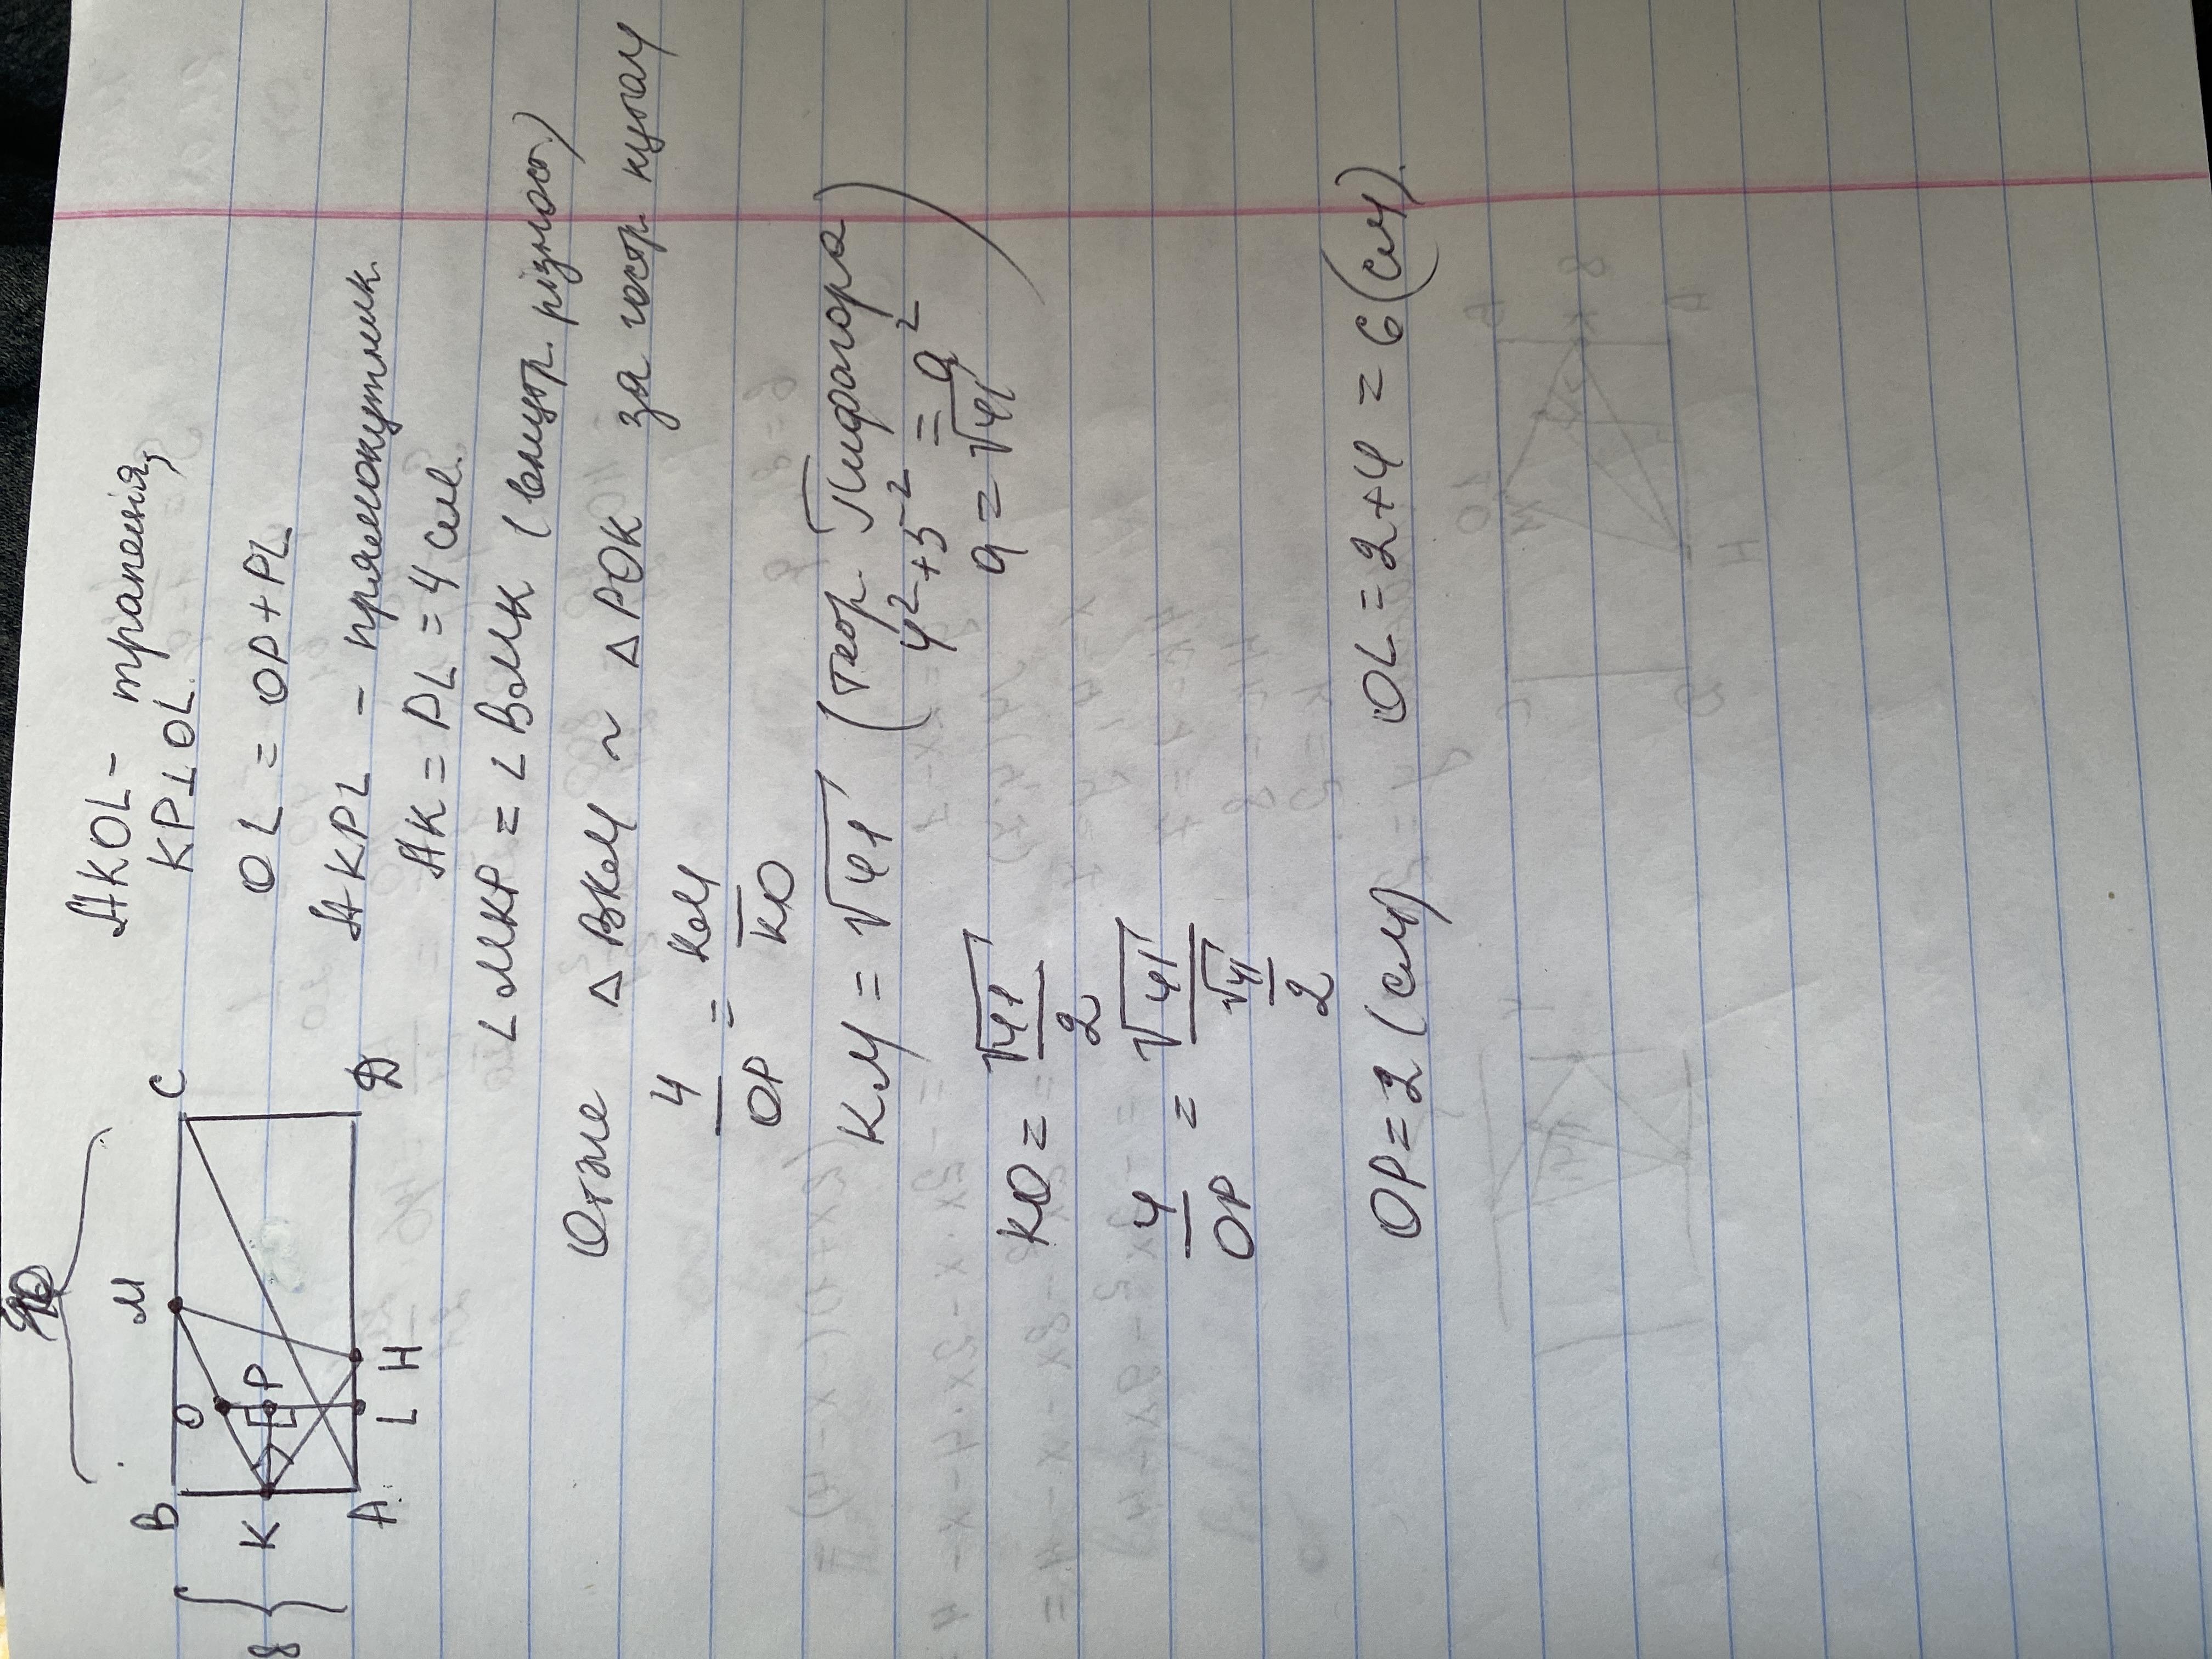 8
B
K
A
O
P
L
H
M
C
D
AKOL - трапеція,
KP⊥OL.
OL = OP + PL
AKPL - прямокутник.
AK = PL = 4 см.
∠MKP = ∠BMK (внутр. різност)
Отже △BKM ~ △POK за гостр кутом
4/OP = KM/KO
KM = √41 (теор. Пифагора)
4² + 5² = a²
a = √41
KO = √41/2
4/OP = √41/(√41/2)
OP = 2 (см) OL = 2+4 = 6 (см).